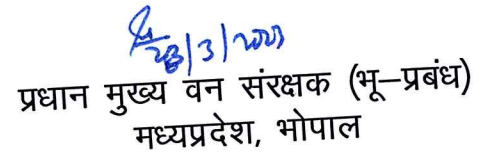 28/3/2023
प्रधान मुख्य वन संरक्षक (भू–प्रबंध)
मध्यप्रदेश, भोपाल